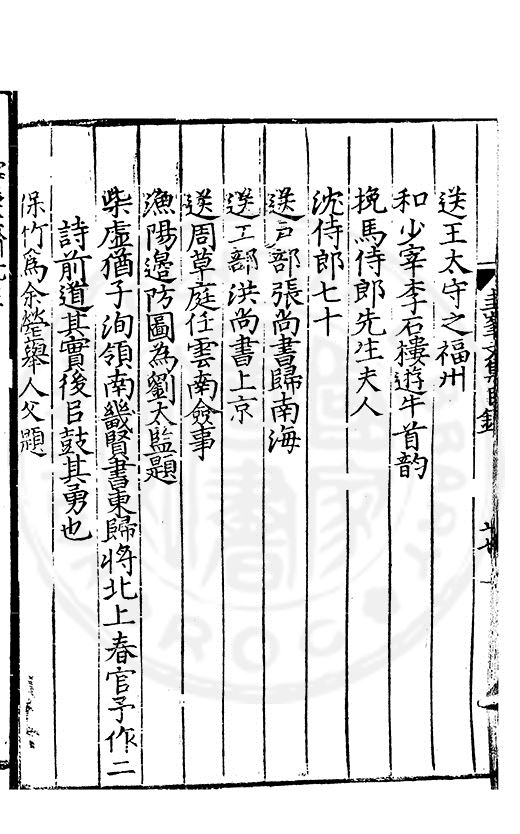 送王太守之福州
和少宰李石樓遊牛首韵
挽馬侍郎先生夫人
沈侍郎七十
送戸部張尚書歸南海
送工部洪尚書上京
送周草庭任雲南僉事
漁陽邊防圖為劉太監題
柴虛猶子洵領南畿賢書東歸將北上春官予作二
詩前道其實後㠯鼓其勇也
保竹爲余瑩舉人父題